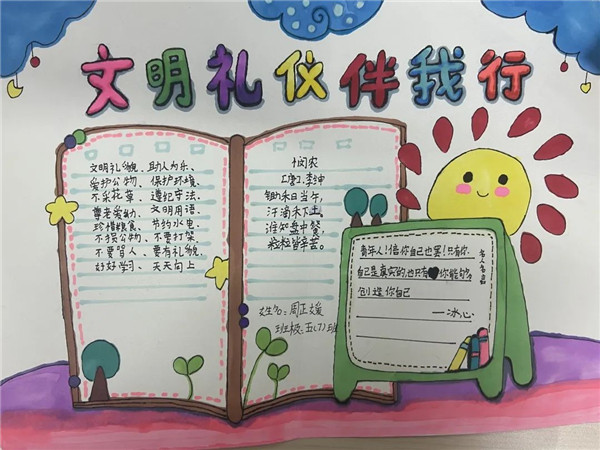 文明礼仪伴我行
文明礼貌、助人为乐、
爱护公物、保护环境、
不采花草、遵纪守法、
尊老爱幼、文明用语、
珍惜粮食、节约水电、
不损公物、不要打架、
不要骂人、要有礼貌、
好好学习、天天向上
悯农
【唐】李绅
锄禾日当午，
汗滴禾下土，
谁知盘中餐，
粒粒皆辛苦。
姓名：周正媛
班级：五（7）班
青年人！信你自己也罢！只有你
自己是真实的，也只有你能够
创造你自己
——冰心
名人名言